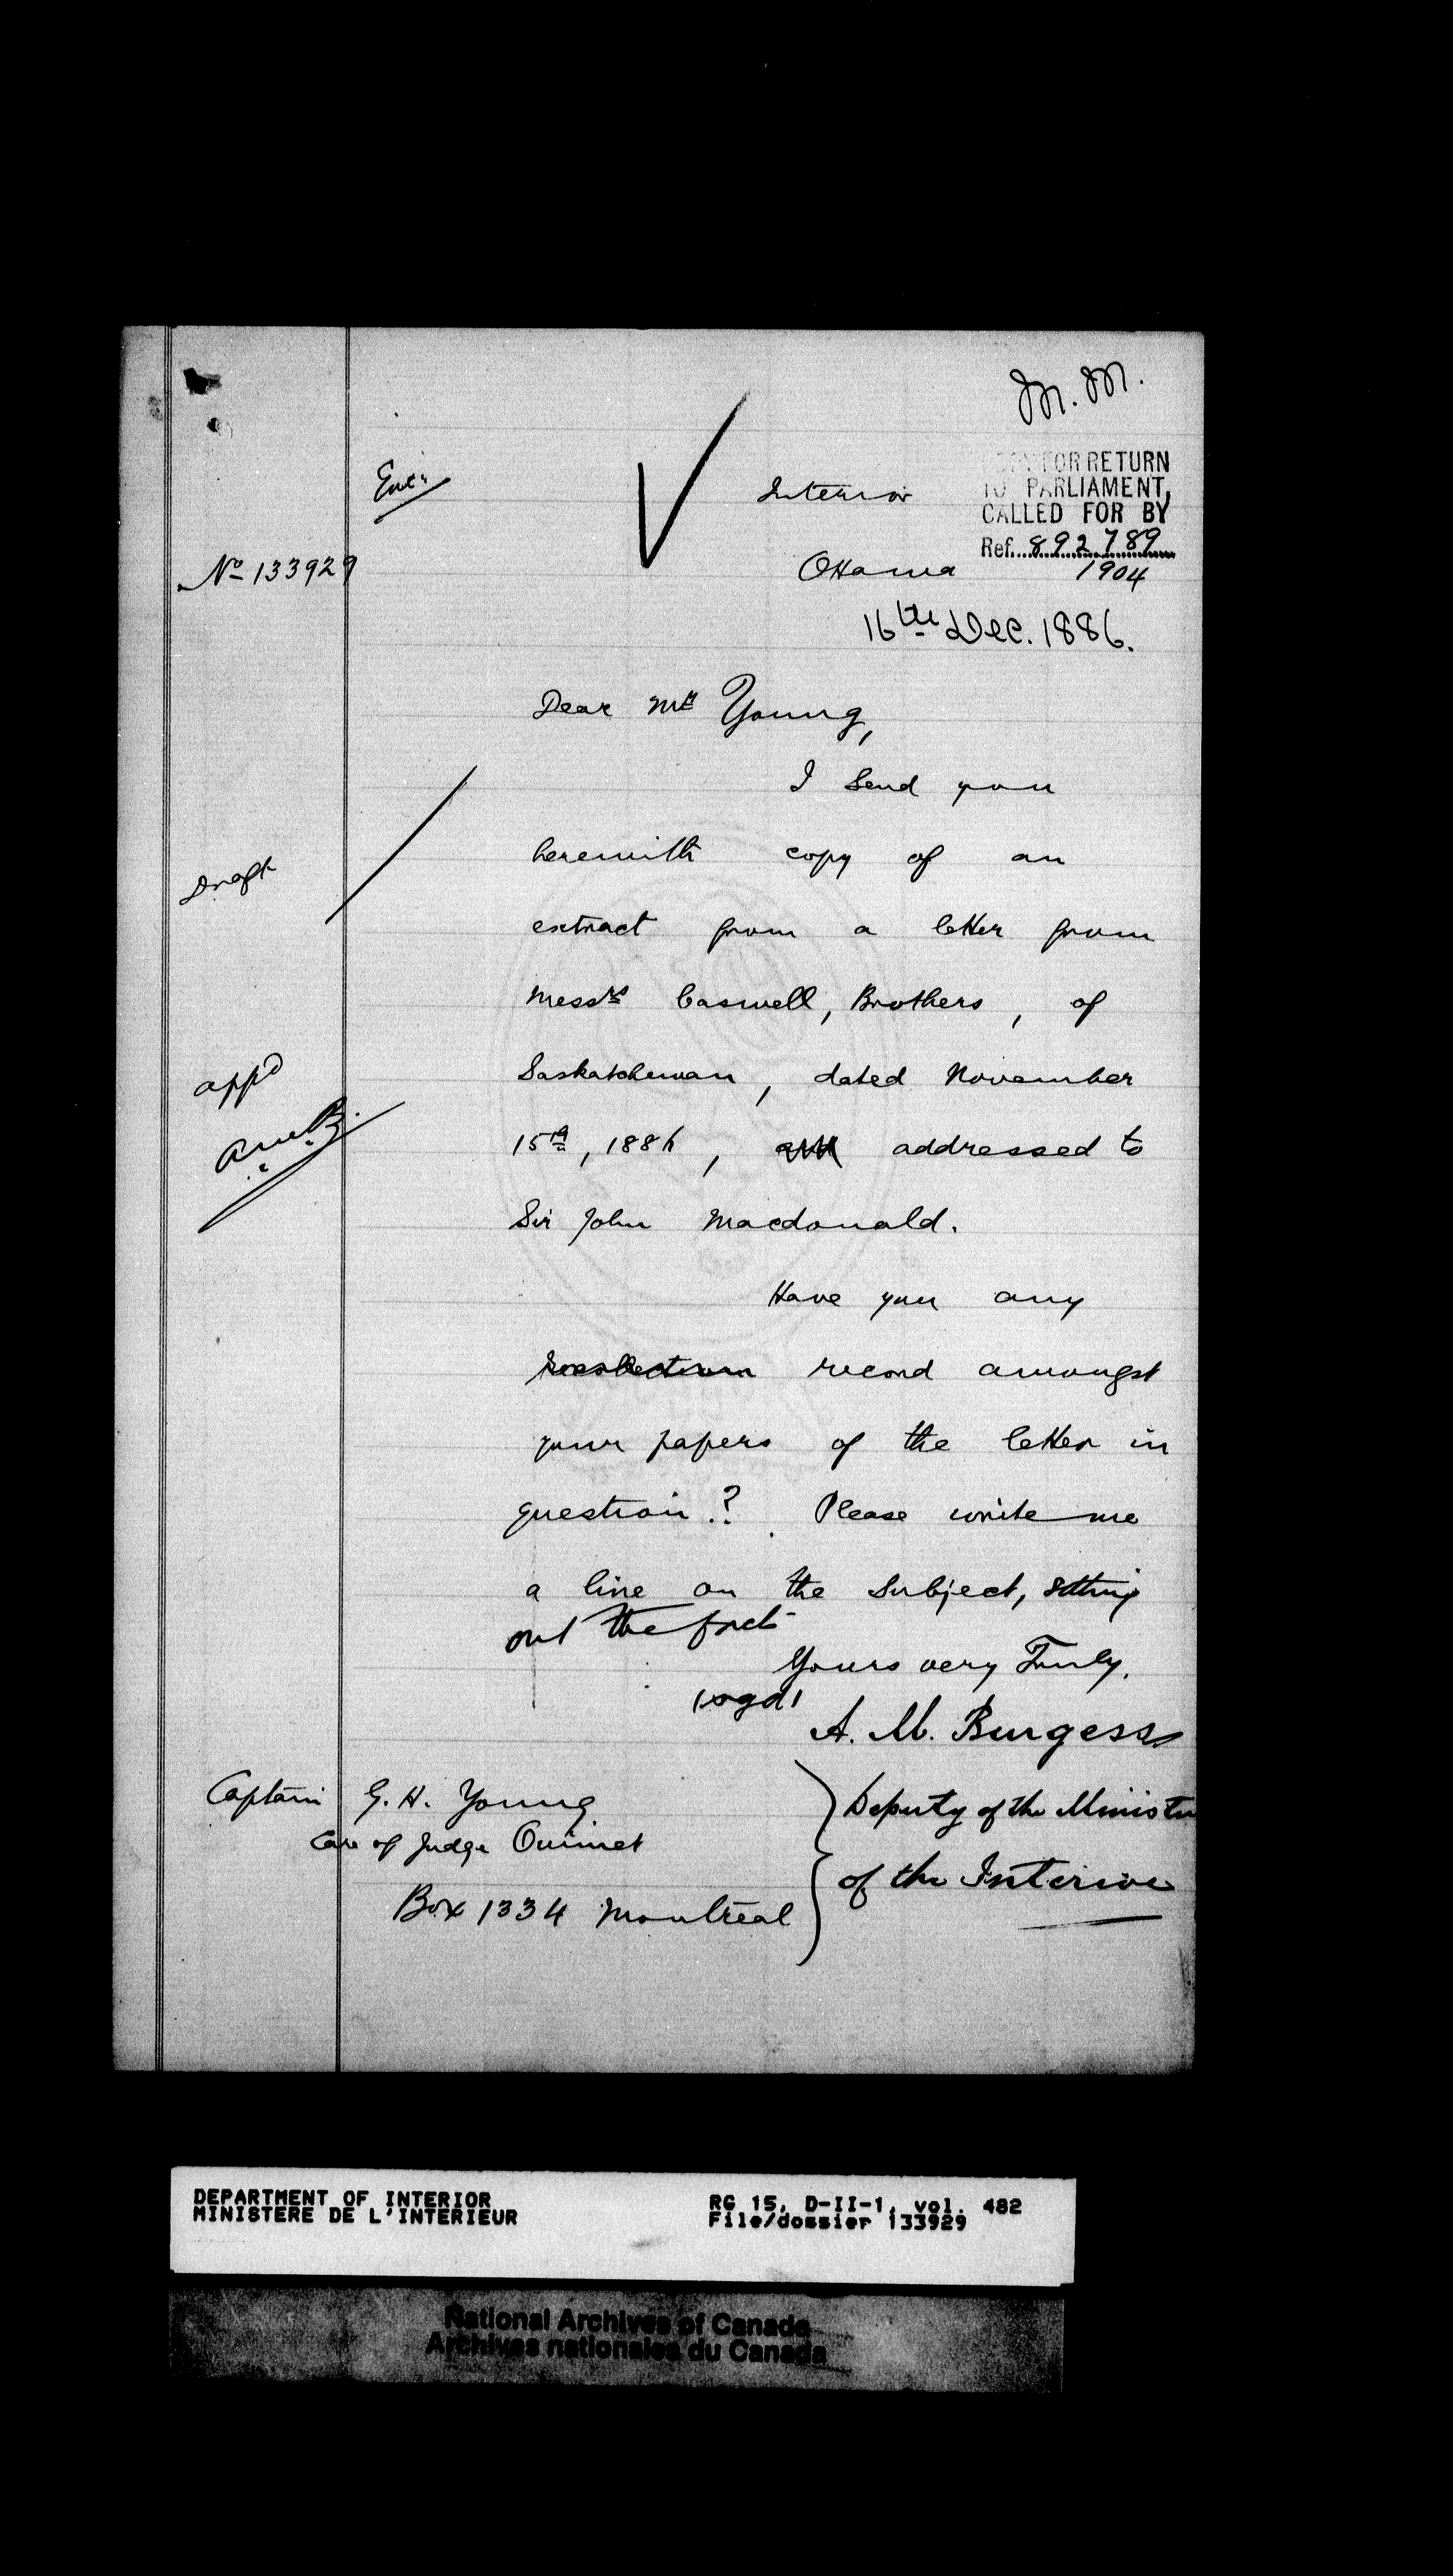 M. M.
FOR RETURN
TO PARLIAMENT,
CALLED FOR BY
Ref. 892789
1904
Enc:
Interior
No 133929
Ottawa
16th Dec. 1886.
Dear Mr Young,
I send you
herewith copy of an
Draft
extract from a letter from
Messrs Caswell, Brothers, of
Saskatchewan, dated November
appd
A.M.B.
15th, 1886, addressed to
Sir John Macdonald.
Have you any
recollection record amongst
your papers of the letter in
question? Please write me
a line on the subject, setting
out the facts
Yours very Truly,
(sgd)
A. M. Burgess
Captain G. H. Young
Care of Judge Ouimet
Box 1334 Montreal
Deputy of the Minister
of the Interior
DEPARTMENT OF INTERIOR
MINISTERE DE L'INTERIEUR
RG 15, D-II-1, vol. 482
File/dossier 133929
National Archives of Canada
Archives nationales du Canada